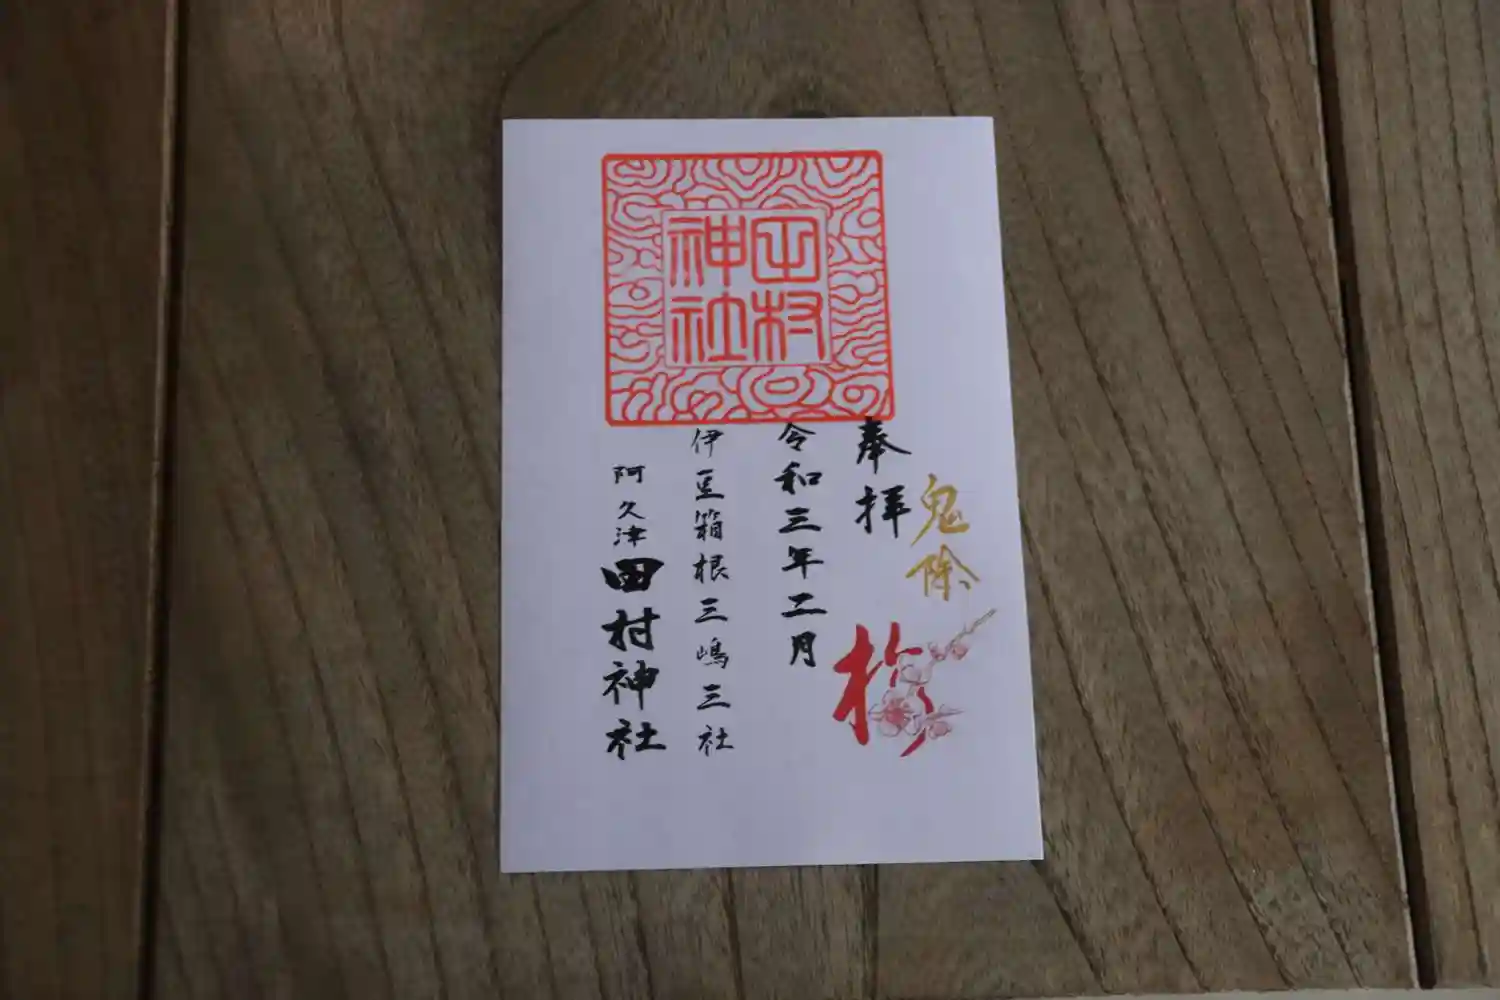 田村
神社
鬼除
奉拝
令和三年二月
伊豆箱根三嶋三社
阿久津田村神社